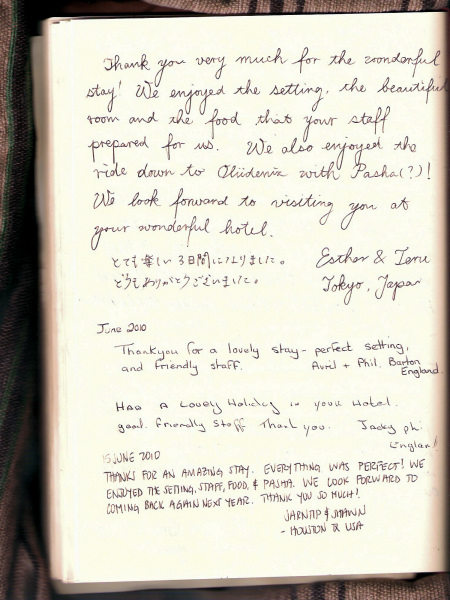 Thank you very much for the wonderful
stay! We enjoyed the setting, the beautiful
room and the food that your staff
prepared for us. We also enjoyed the
ride down to Ölüdeniz with Pasha(?)!
We look forward to visiting you at
your wonderful hotel.
とても楽しい3日間になりました。
どうもありがとうございました。
Esther & Teru
Tokyo, Japan
June 2010
Thankyou for a lovely stay - perfect setting,
and friendly staff. Avril + Phil. Barton
England.
Had A Lovely Holiday in your Hotel.
good friendly Staff Thank you. Jacky ph.
15 JUNE 2010
THANKS FOR AN AMAZING STAY. EVERYTHING WAS PERFECT! WE
ENJOYED THE SETTING, STAFF, FOOD, & PASHA. WE LOOK FORWARD TO
COMING BACK AGAIN NEXT YEAR. THANK YOU SO MUCH!
JARNTIP & SHAWN
- HOUSTON USA